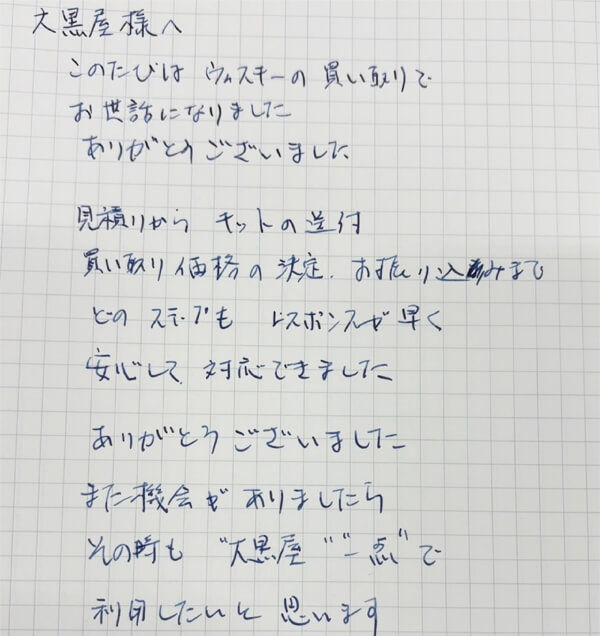 大黒屋様へ
このたびは ウィスキーの 買い取りで
お世話になりました
ありがとうございました
見積りから キットの送付
買い取り価格の決定、お振り込みまで
どの ステップも レスポンスが早く
安心して 対応できました
ありがとうございました
また機会が ありましたら
その時も "大黒屋" "一点" で
利用したいと 思います